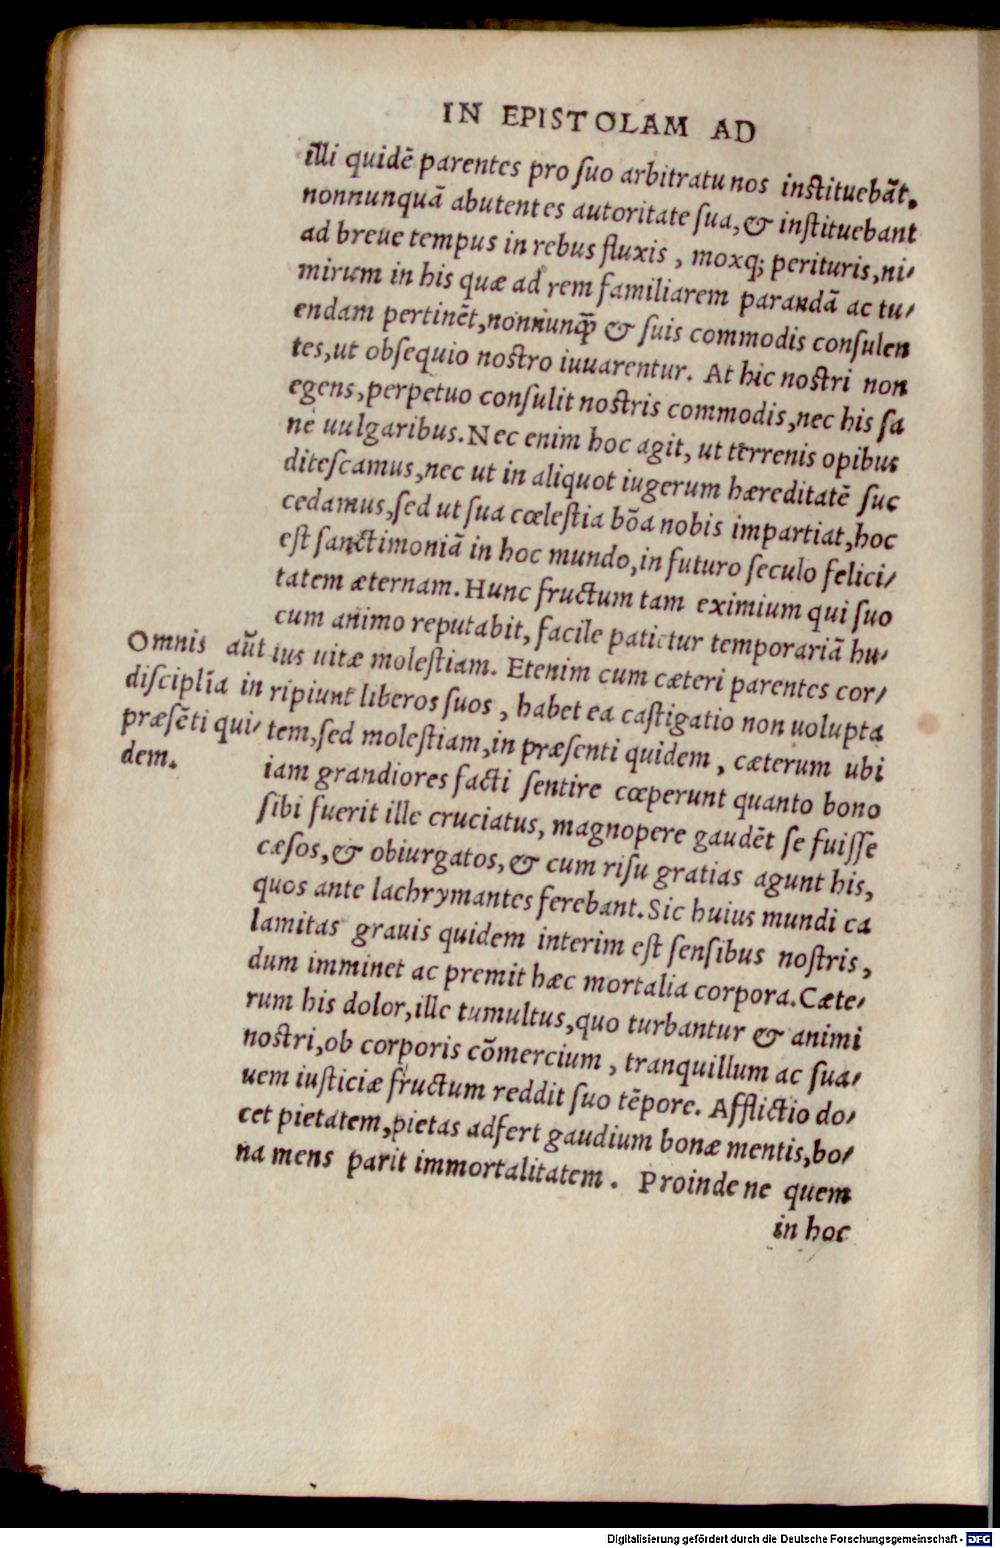 IN EPISTOLAM AD
illi quidē parentes pro ſuo arbitratu nos inſtituebãt,
nonnunquã abutentes autoritate ſua, & inſtituebant
ad breue tempus in rebus fluxis, moxq; perituris, ni-
mirum in his quæ ad rem familiarem parandã ac tu-
endam pertinēt, nonnunq̃ & ſuis commodis conſulen
tes, ut obſequio noſtro iuuarentur. At hic noſtri non
egens, perpetuo conſulit noſtris commodis, nec his ſa
ne uulgaribus. Nec enim hoc agit, ut terrenis opibus
diteſcamus, nec ut in aliquot iugerum hæreditatē ſuc
cedamus, ſed ut ſua cœleſtia bõa nobis impartiat, hoc
eſt ſanctimoniã in hoc mundo, in futuro ſeculo felici-
tatem æternam. Hunc fructum tam eximium qui ſuo
cum animo reputabit, facile patietur temporariã hu-
ius uitæ moleſtiam. Etenim cum cæteri parentes cor-
ripiunt liberos ſuos, habet ea caſtigatio non uolupta
tem, ſed moleſtiam, in præſenti quidem, cæterum ubi
iam grandiores facti ſentire cœperunt quanto bono
ſibi fuerit ille cruciatus, magnopere gaudēt ſe fuiſſe
cæſos, & obiurgatos, & cum riſu gratias agunt his,
quos ante lachrymantes ferebant. Sic huius mundi ca
lamitas grauis quidem interim eſt ſenſibus noſtris,
dum imminet ac premit hæc mortalia corpora. Cæte-
rum his dolor, ille tumultus, quo turbantur & animi
noſtri, ob corporis cõmercium, tranquillum ac ſua-
uem iuſticiæ fructum reddit ſuo tēpore. Afflictio do-
cet pietatem, pietas adfert gaudium bonæ mentis, bo-
na mens parit immortalitatem. Proinde ne quem
in hoc
Omnis aũt
diſciplĩa in
præſēti qui-
dem.
Digitalisierung gefördert durch die Deutsche Forschungsgemeinschaft - DFG